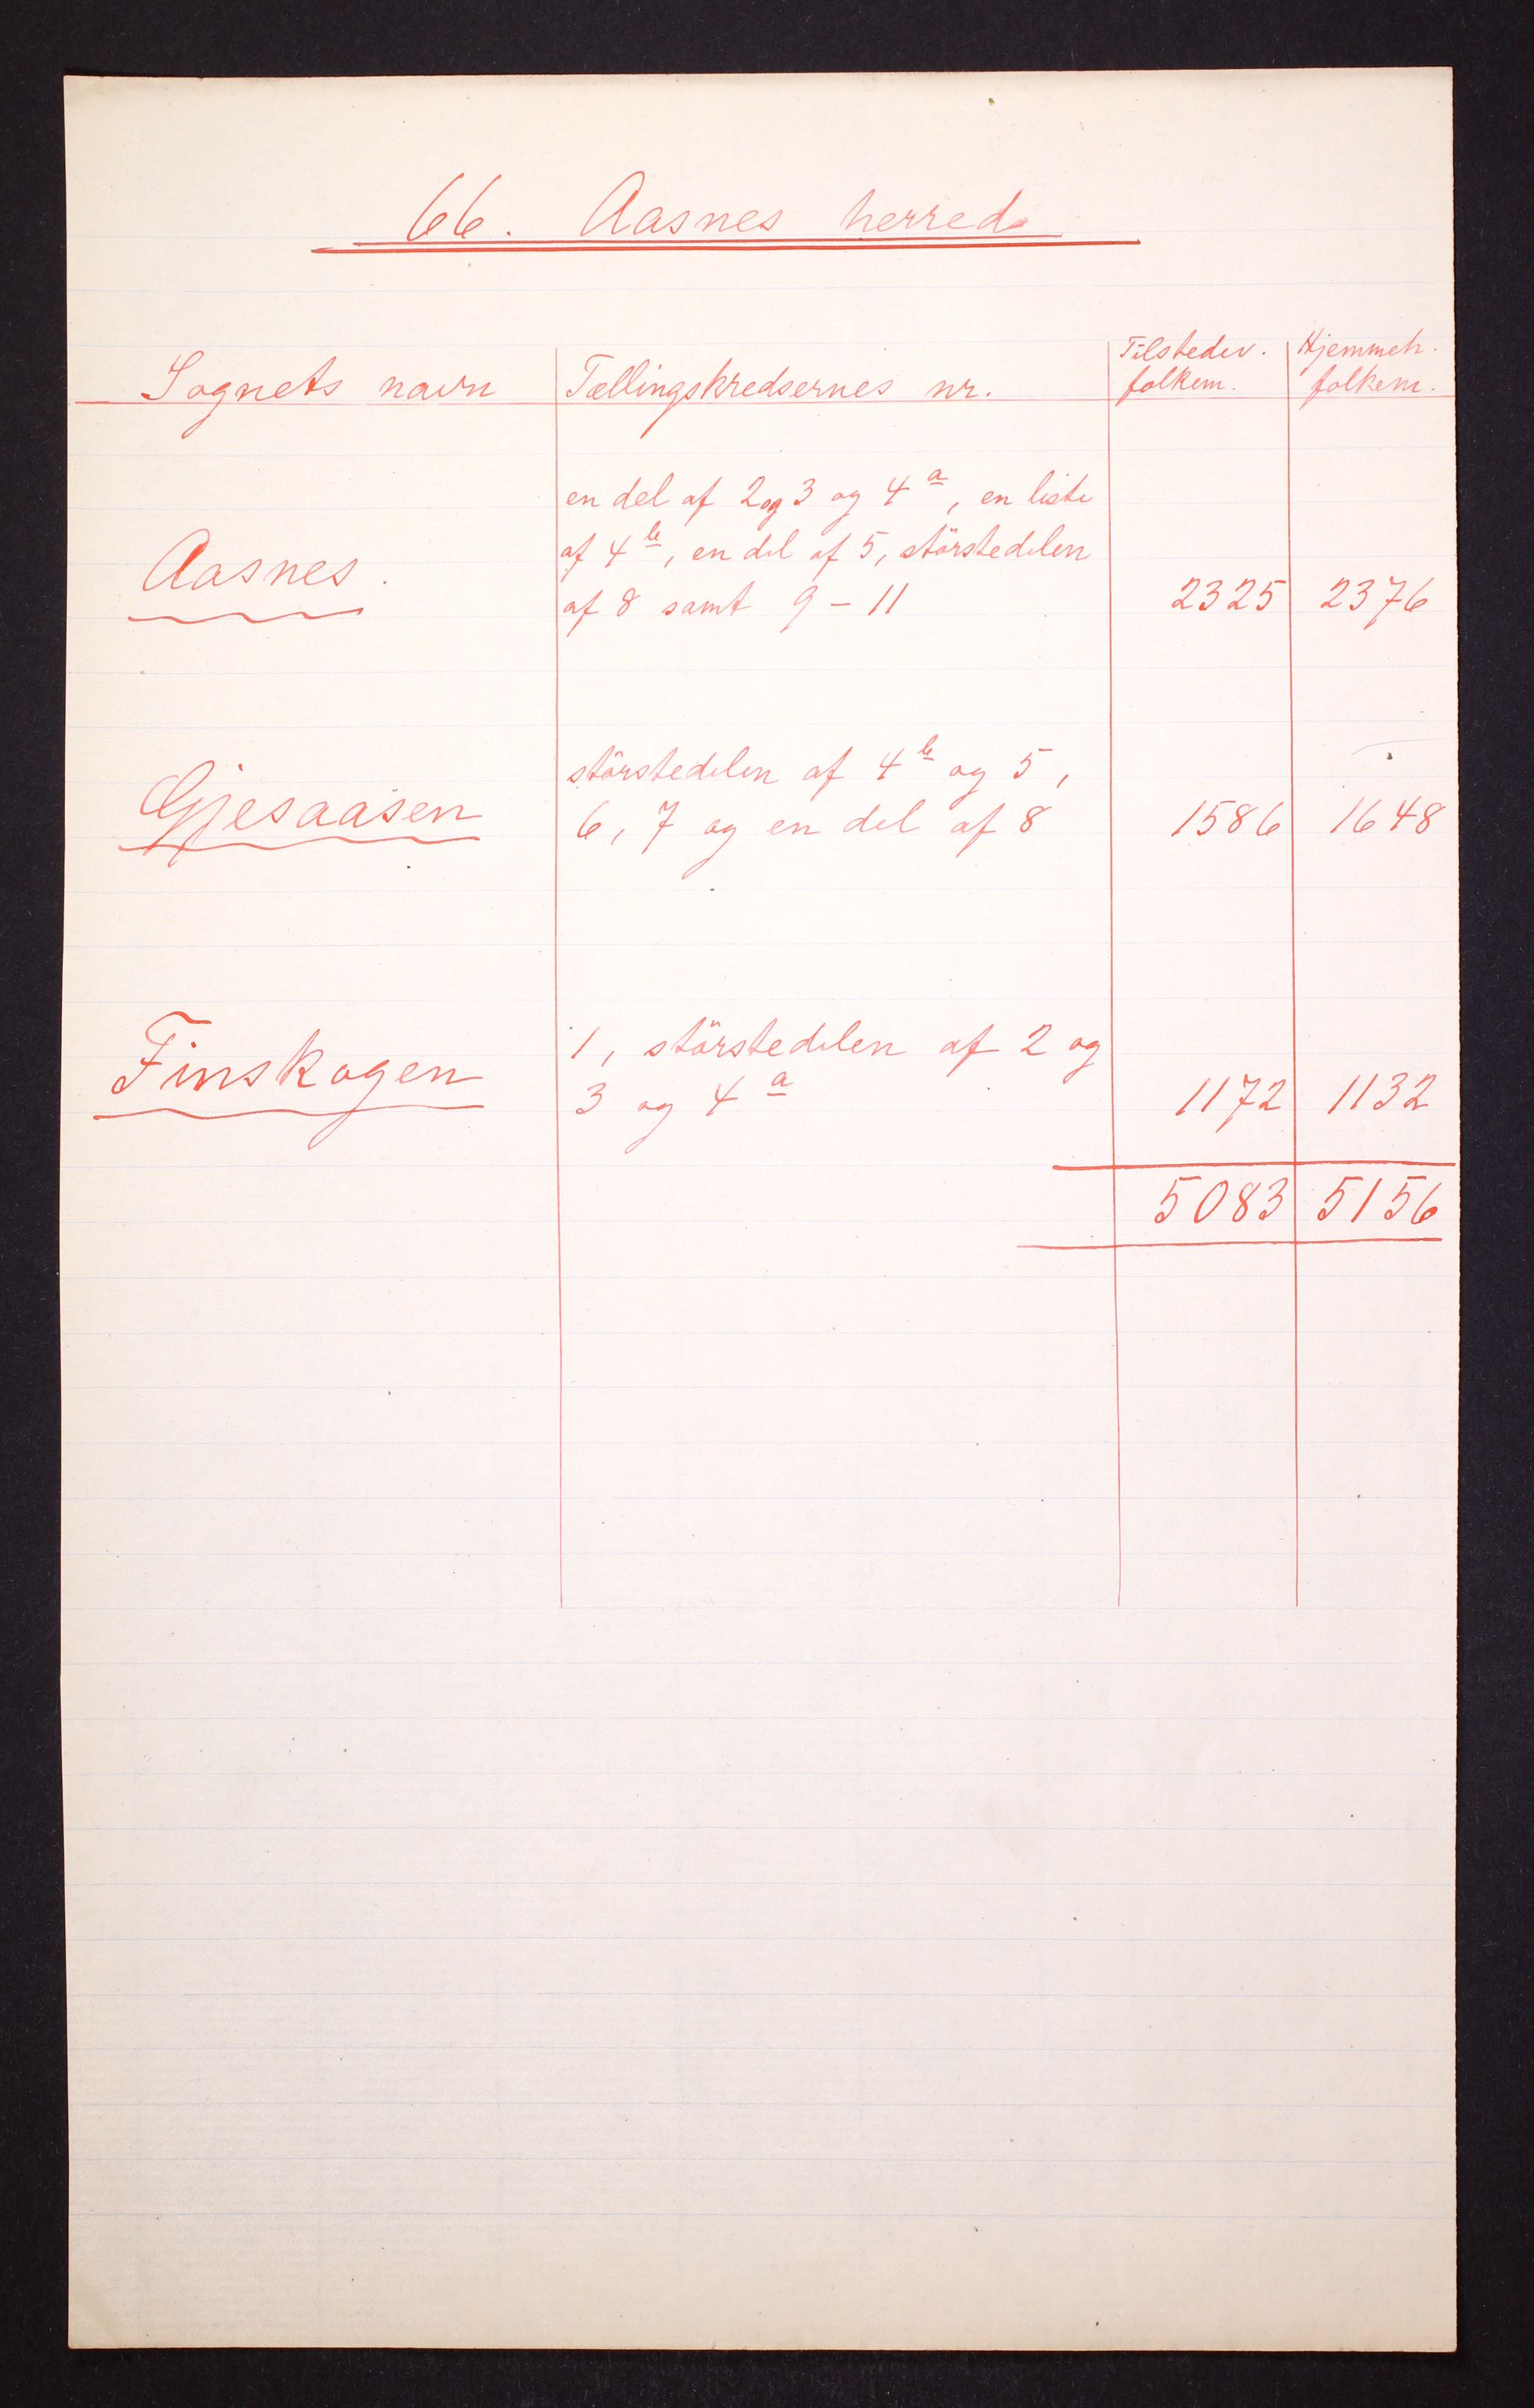 66. Aasnes herred
Sognets navn Tællingskredsernes nr. Tilstedev. folkem. Hjemmeh. folkem.
en del af 2 og 3 og 4a, en liste
af 4b, en del af 5, störstedelen
Aasnes. af 8 samt 9 – 11 2325 2376
störstedelen af 4b og 5,
Gjesaasen 6, 7 og en del af 8 1586 1648
1, störstedelen af 2 og
Finskogen 3 og 4a 1172 1132
5083 5156